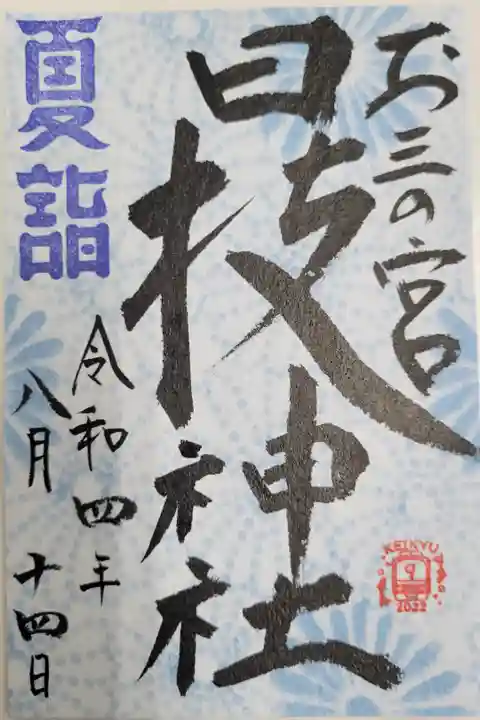 お三の宮
日枝神社
夏詣
令和四年
八月十四日
KEIKYU
9
2022